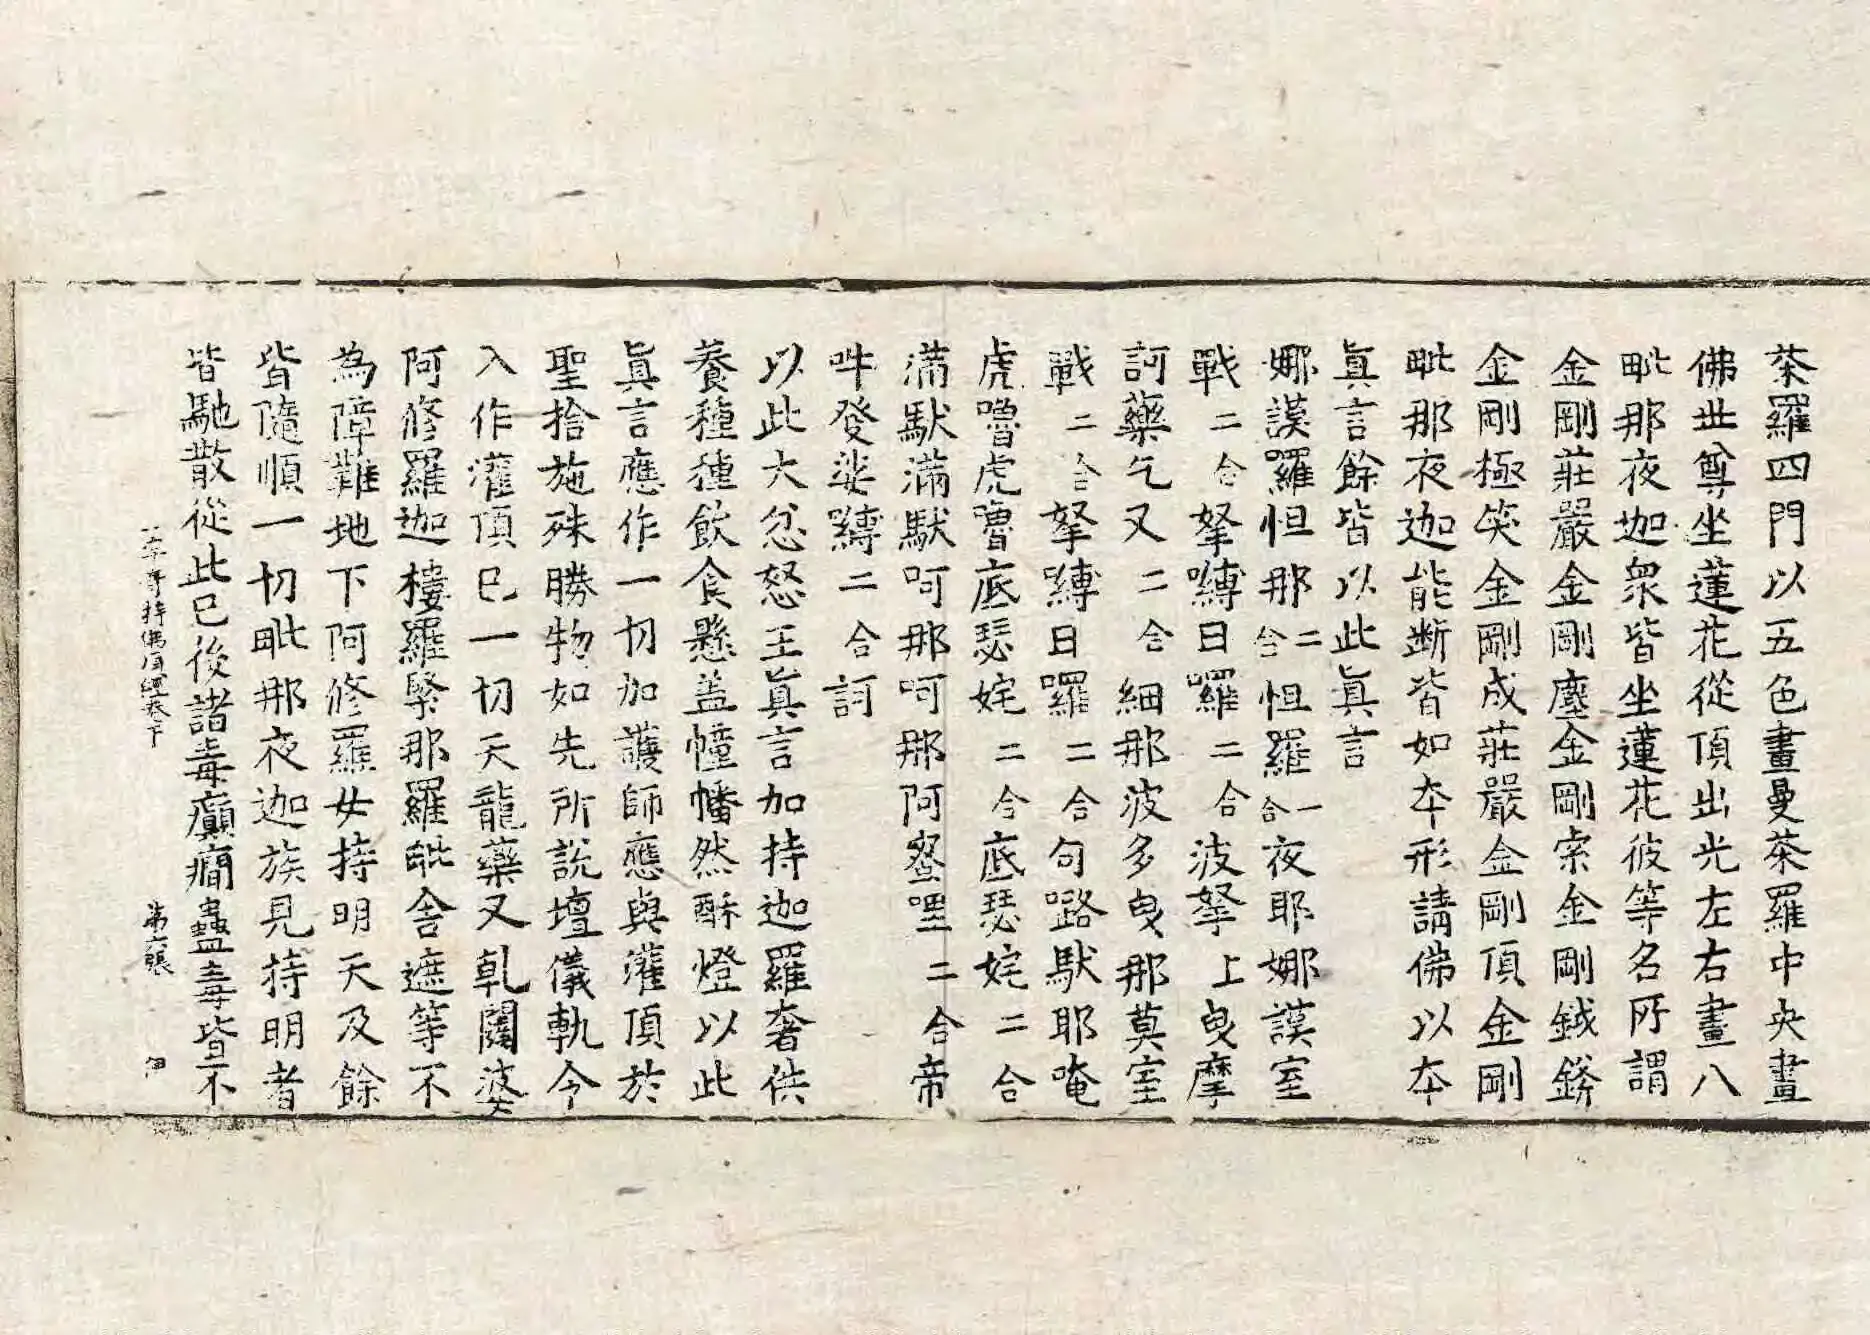 茶羅四門以五色畫曼茶羅中央畫
佛世尊坐蓮花從頂出光左右畫八
毗那夜迦衆皆坐蓮花彼等名所謂
金剛莊嚴金剛塵金剛索金剛鉞鎊
金剛極笑金剛成莊嚴金剛頂金剛
毗那夜迦能斷皆如本形請佛以本
眞言餘皆以此眞言
娜謨羅怛那二合怛羅二合夜耶娜謨室
戰二合拏嚩日羅二合波拏上曳摩
訶藥乞叉二合細那波多曳那莫室
戰二合拏嚩日囉二合句嚕馱耶唵
虎嚕虎嚕底瑟姹二合底瑟姹二合
滿馱滿馱呵那呵那阿蜜哩二合帝
吽發娑嚩二合訶
以此大忿怒王眞言加持迦羅奢供
養種種飲食懸盖幢幡然酥燈以此
眞言應作一切加護師應與灌頂於
聖捨施殊勝物如先所說壇儀軌令
入作灌頂已一切天龍藥叉乹闥婆
阿修羅迦樓羅緊那羅毗舍遮等不
為障難地下阿修羅女持明天及餘
皆隨順一切毗那夜迦族見持明者
皆馳散從此已後諸毒癲癎蠱毒皆不
字 持佛 經卷下 第六張